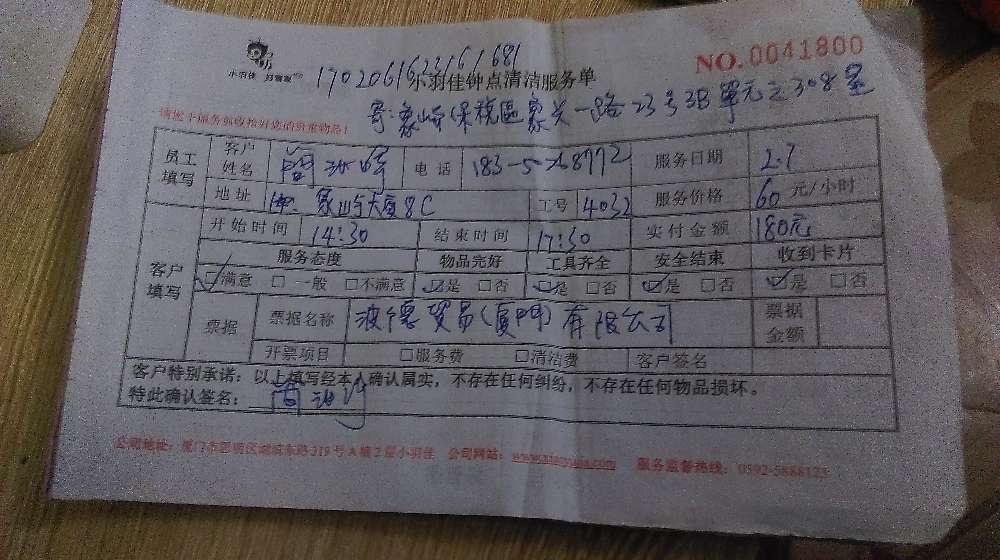 NO.0041800
小羽佳
1702061623161681
小羽佳钟点清洁服务单
寄:象屿保税區象兴一路23号3B單元之308室
员工填写
客户姓名
电话
服务日期 2.7
地址 象屿大厦8C
工号 4032
服务价格 60 元/小时
客户填写
开始时间 14:30
结束时间 17:30
实付金额 180元
服务态度 物品完好 工具齐全 安全结束 收到卡片
☑满意 □一般 □不满意 ☑是 □否 ☑是 □否 ☑是 □否 ☑是 □否
票据
票据名称 波德贸易(廈門)有限公司
票据金额
开票项目 □服务费 □清洁费 客户签名
客户特别承诺:以上填写经本人确认属实,不存在任何纠纷,不存在任何物品损坏。
特此确认签名:
公司地址:厦门市思明区湖滨东路319号A幢2层小羽佳 公司网站: 服务监督热线:0592-5888123